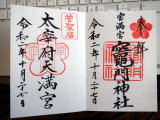 宝満宮
竈門神社
令和二年十月二十七日
菅聖廟
太宰府天満宮
令和二年十月二十七日